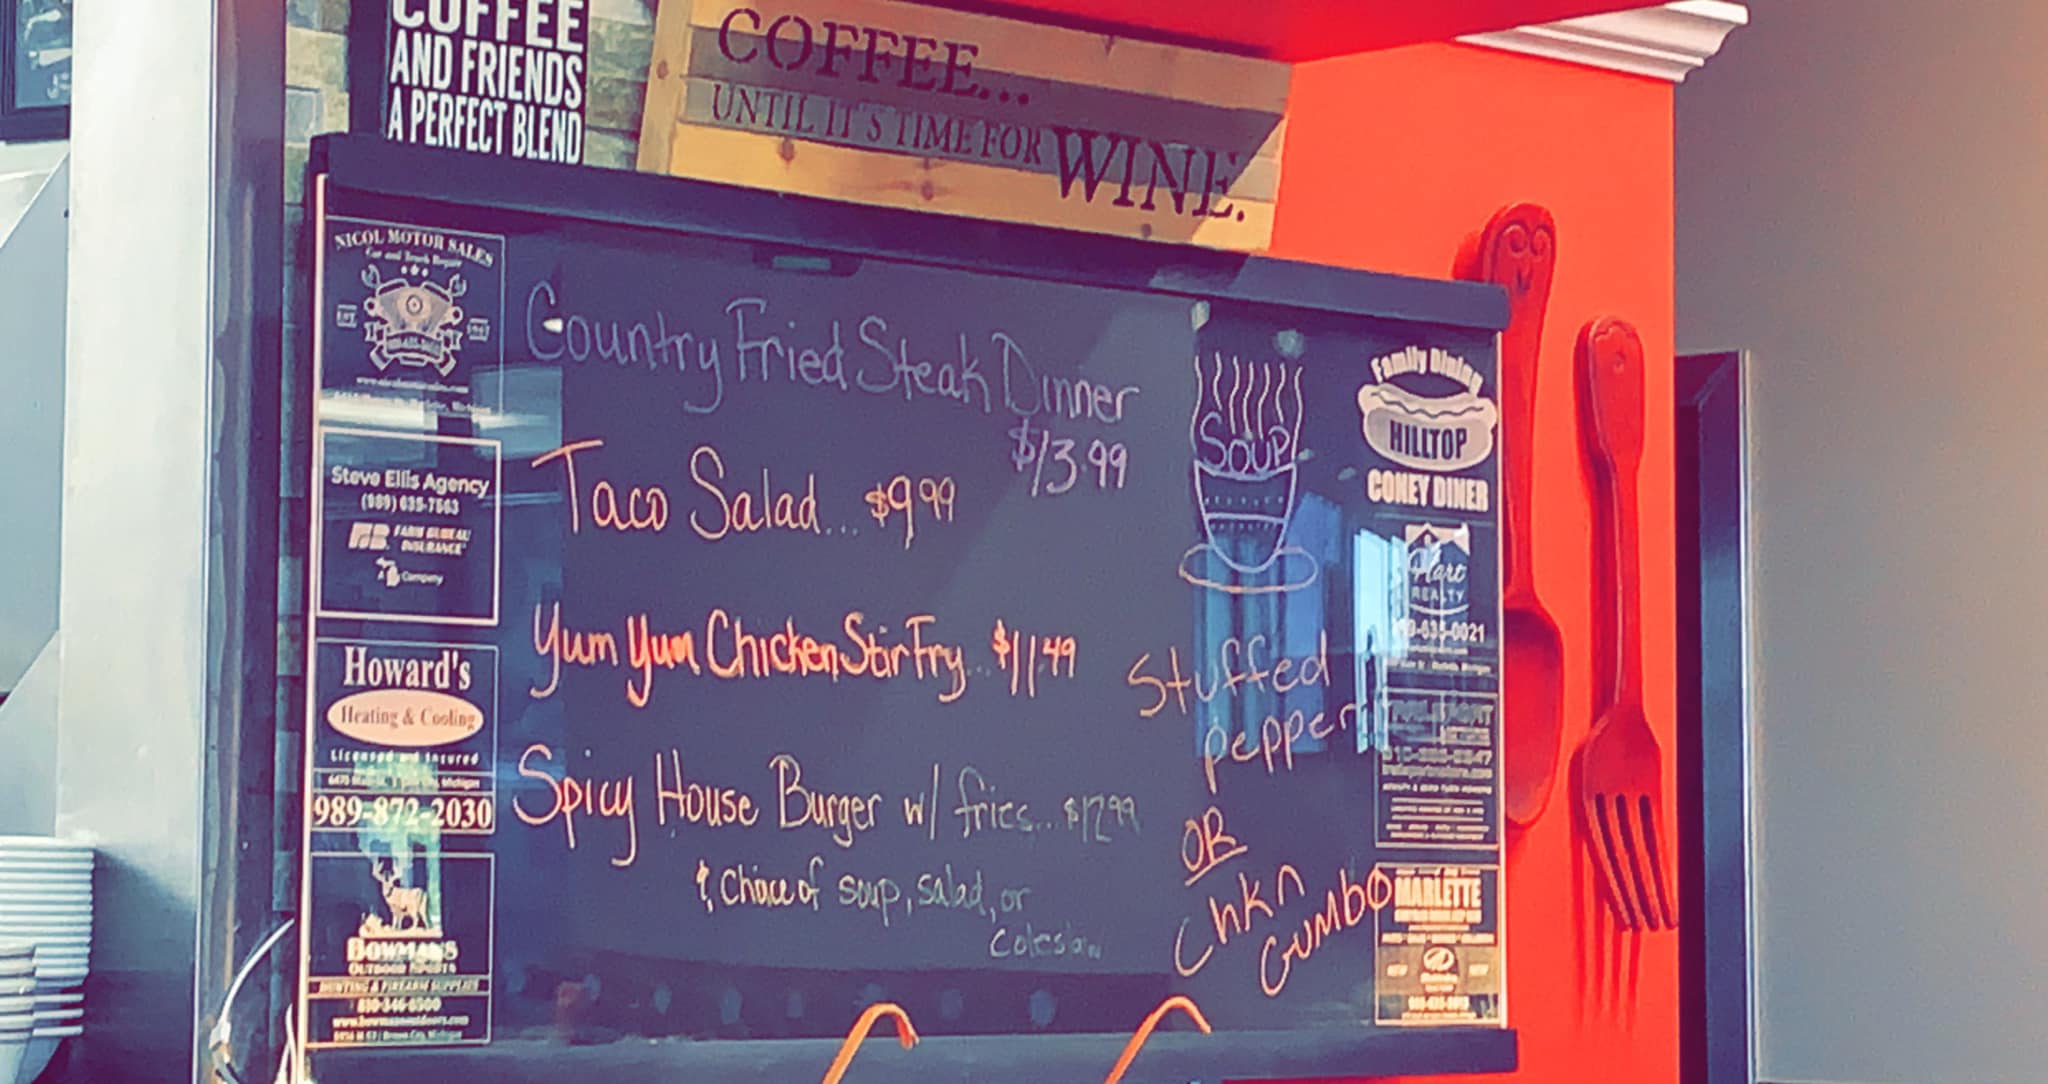 COFFEE
AND FRIENDS
A PERFECT BLEND
COFFEE...
UNTIL IT'S TIME FOR WINE.
NICOL MOTOR SALES
Car and Truck Repair
EST.
Steve Ellis Agency
(989) 635-7563
FARM BUREAU
INSURANCE
A Company
Howard's
Heating & Cooling
Licensed and Insured
989-872-2030
BOWMAN'S
OUTDOOR SPORTS
HUNTING & FIREARM SUPPLIES
810-346-8500
www.bowmansoutdoors.com
Country Fried Steak Dinner
$13.99
Taco Salad... $9.99
Yum Yum Chicken Stir Fry... $11.49
Spicy House Burger w/ fries... $12.99
& Choice of soup, salad, or
Coleslaw
SOUP
Stuffed
pepper
OR
Chkn
Gumbo
Family Dining
HILLTOP
CONEY DINER
Hart
REALTY
635-0021
MARLETTE